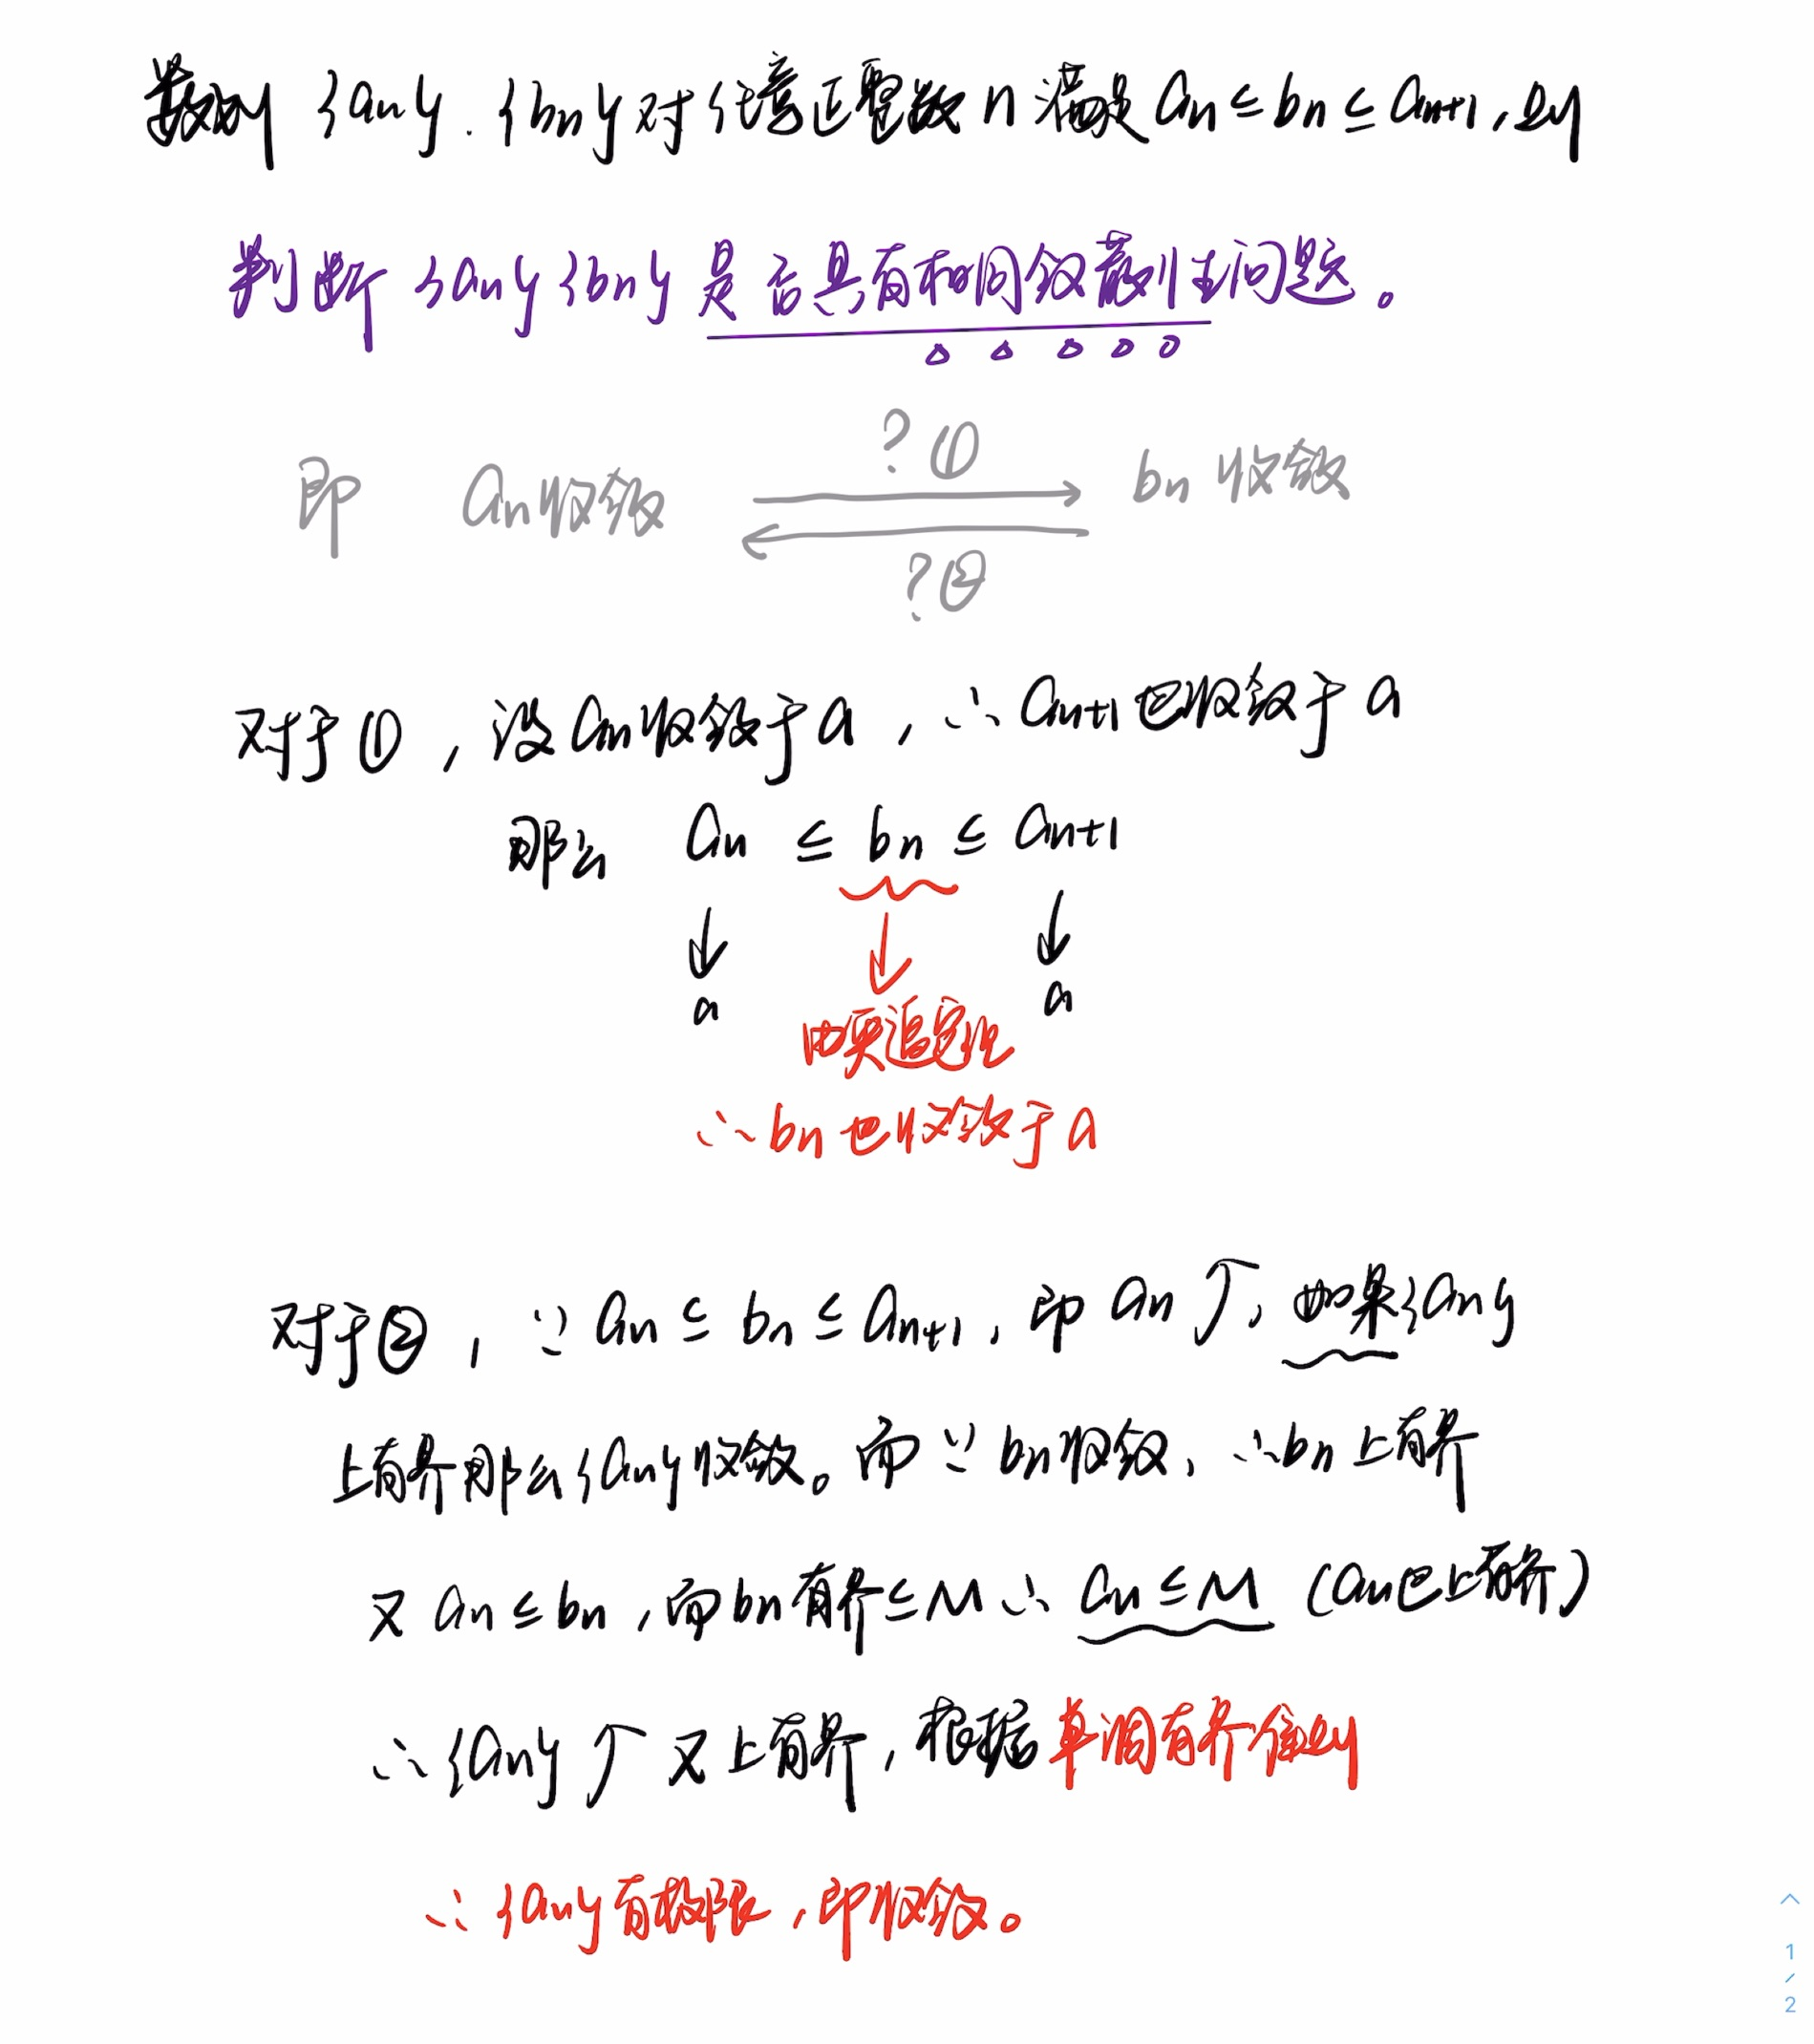 数列 {an}. {bn} 对任意正整数 n 满足 an ≤ bn ≤ an+1, 则
判断 {an} {bn} 是否具有相同敛散性问题。
? ①
即 an收敛 bn 收敛
? ②
对于①, 设 an 收敛于 a, ∴ an+1 也收敛于 a
那么 an ≤ bn ≤ an+1
↓ ↓ ↓
a a
由夹逼定理
∴ bn 也收敛于 a
对于②, ∵ an ≤ bn ≤ an+1, 即 an ↑, 如果 {an}
上有界 那么 {an} 收敛。而 ∵ bn 收敛, ∴ bn 上有界
又 an ≤ bn, 而 bn 有界 ≤ M ∴ an ≤ M (an也上有界)
∴ {an} ↑ 又上有界, 根据 单调有界准则
∴ {an} 有极限, 即收敛。
1
/
2